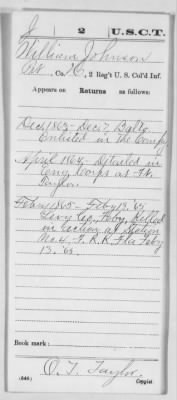 J 2 U.S.C.T.
William Johnson
Pvt., Co. C, 2 Reg't U. S. Col'd Inf.
Appears on Returns as follows:
Dec 1863 - Dec 7, Balto
Enlisted in the Comp'y
April 1864 - Detailed in
Corps at Ft.
Taylor.
Feby 1865 - Feby 13, '65
Levy Co., Killed
in action at Station
No. 4, F. R. R. Fla Feby
13, '65.
Book mark:
O. T. Taylor
(546) Copyist.